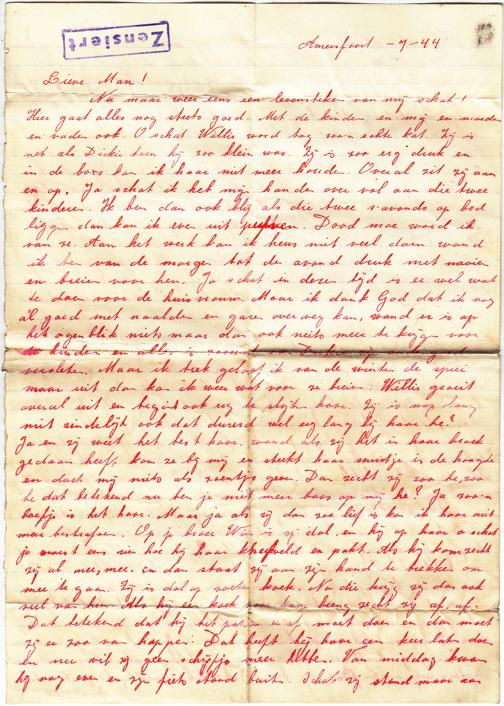 Zensiert
Amersfoort -7-44
Lieve Man!
Nu maar weer eens een levensteken van mij schat!
Hier gaat alles nog steeds goed. Met de kinden en mij en moeder
en vader ook. O schat Willie word toch zoo'n echte kat. Zij is
net als Dickie toen hij zoo klein was. Zij is zoo erg druk en
in de box kan ik haar niet meer houden. Overal zit zij aan
en op. Ja schat ik heb mijn handen over vol aan die twee
kinderen. Ik ben dan ook blij als die twee s'avonds op bed
liggen dan kan ik even uit puffen. Dood moe word ik
van ze. Aan het werk kan ik heus niet veel doen want
ik ben van de morgen tot de avond druk met naaien
en breien voor hen. Ja schat in dezen tijd is er wel wat
te doen voor de huisvrouw. Maar ik dank God dat ik nog
al goed met naalden en garen over weg kan, want er is op
het ogenblik niets maar dan ook niets meer te krijgen voor
de kinden en alles is
versleten. Maar ik trek geloof ik van de winter de sprei
maar uit dan kan ik weer wat voor ze breien. Willie groeit
overal uit en begint ook erg te slijten hoor. Zij is nog lang
niet zindelijk ook dat duurd wel erg lang bij haar he?
Ja en zij weet het best hoor, want als zij het in haar broek
gedaan heeft kom ze bij mij en steekt haar mondje in de hoogte
en dach mij niets als zoentjes geven. Dan zecht zij zoo he, zoo
he dat betekend nu ben je niet meer boos op mij he? Ja zoo'n
boefje is het hoor. Maar ja als zij dan zoo lief is kan ik haar niet
meer bestraffen. Op je broer Wim is zij dol, en hij op haar o schat
je moest eens zien hoe hij haar knuffeld en pakt. Als hij kom zecht
zij al mee, mee. en dan staat zij aan zijn hand te trekken om
mee te gaan. Zij is dol op zoete koek. Nu die krijg zij dan ook
veel van hem. Als hij een koek voor haar breng zecht zij af, af.
Dat betekend dat hij het papier er af moet doen en dan moet
zij er zoo van happen. Dat heeft hij haar een keer laten doen
en nu wil zij geen schijfje meer hebben. Van middag kwam
hij nog even en zijn fiets stond buit. Schat zij stond maar aan